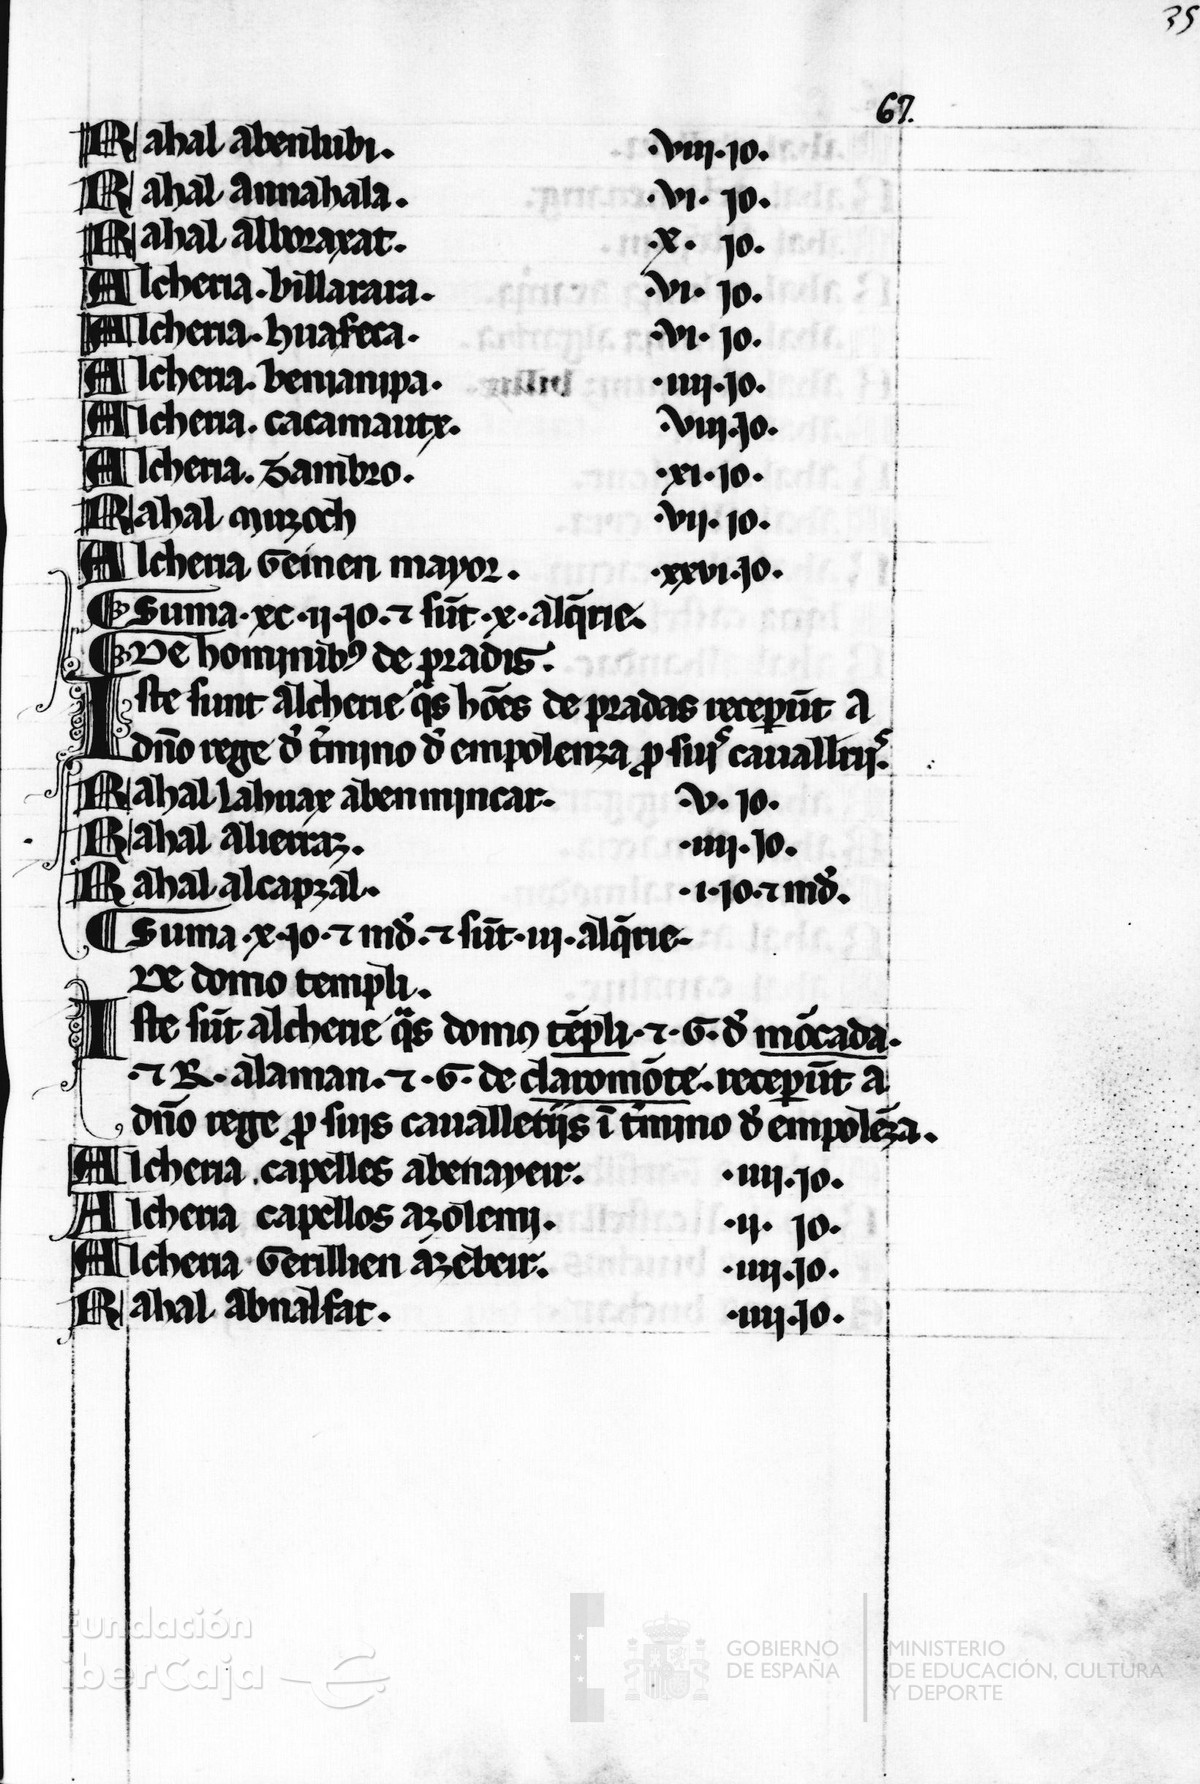 35
67.
Rahal abenlubi. ·viii·jo·
Rahal annahala. ·vi· jo·
Rahal alboraxat. ·x· jo·
Alcheria·billarara. ·vi· jo·
Alcheria·huafeca. ·vi· jo·
Alcheria·benianipa· ·iiij·jo·
Alcheria·cacamautx. ·viii·jo·
Alcheria·Zambro. ·xi·jo·
Rahal muzoch ·vij·jo·
Alcheria Geinen mayor. ·xxvi·jo·
Suma·xc·ij·jo·⁊ sūt·x·alq̄rie.
De hominibꝰ de pradis.
Iste sunt alcherie q̄s hōes de pradas receperūt a
dn̄o rege d̄ t̄mino d̄ empolenza ꝓ suis cauallrijs.
Rahal lahuax abenmincar. ·v·jo·
Rahal alierraz. ·iiij·jo·
Rahal alcapzal. ·i·jo·⁊ md̄.
Suma·x·jo·⁊ md̄·⁊ sūt·iii·alq̄rie-
De domo templi.
Iste sūt alcherie q̄s domꝰ tēpli·⁊·G·d̄ mōcada.
·⁊ R·alaman·⁊·G·de claromōte·receperūt a
dn̄o rege ꝓ suis caualletijs ī t̄mino d̄ empolēza.
Alcheria·capelles abenayeir. ·iiij·jo·
Alcheria capellos azolemi. ·ii· jo·
Alcheria Gerillien azebeir. ·iiij·jo·
Rahal abnalfat. ·iiij·jo·
Fundación
iberCaja
GOBIERNO
DE ESPAÑA
MINISTERIO
DE EDUCACIÓN, CULTURA
Y DEPORTE